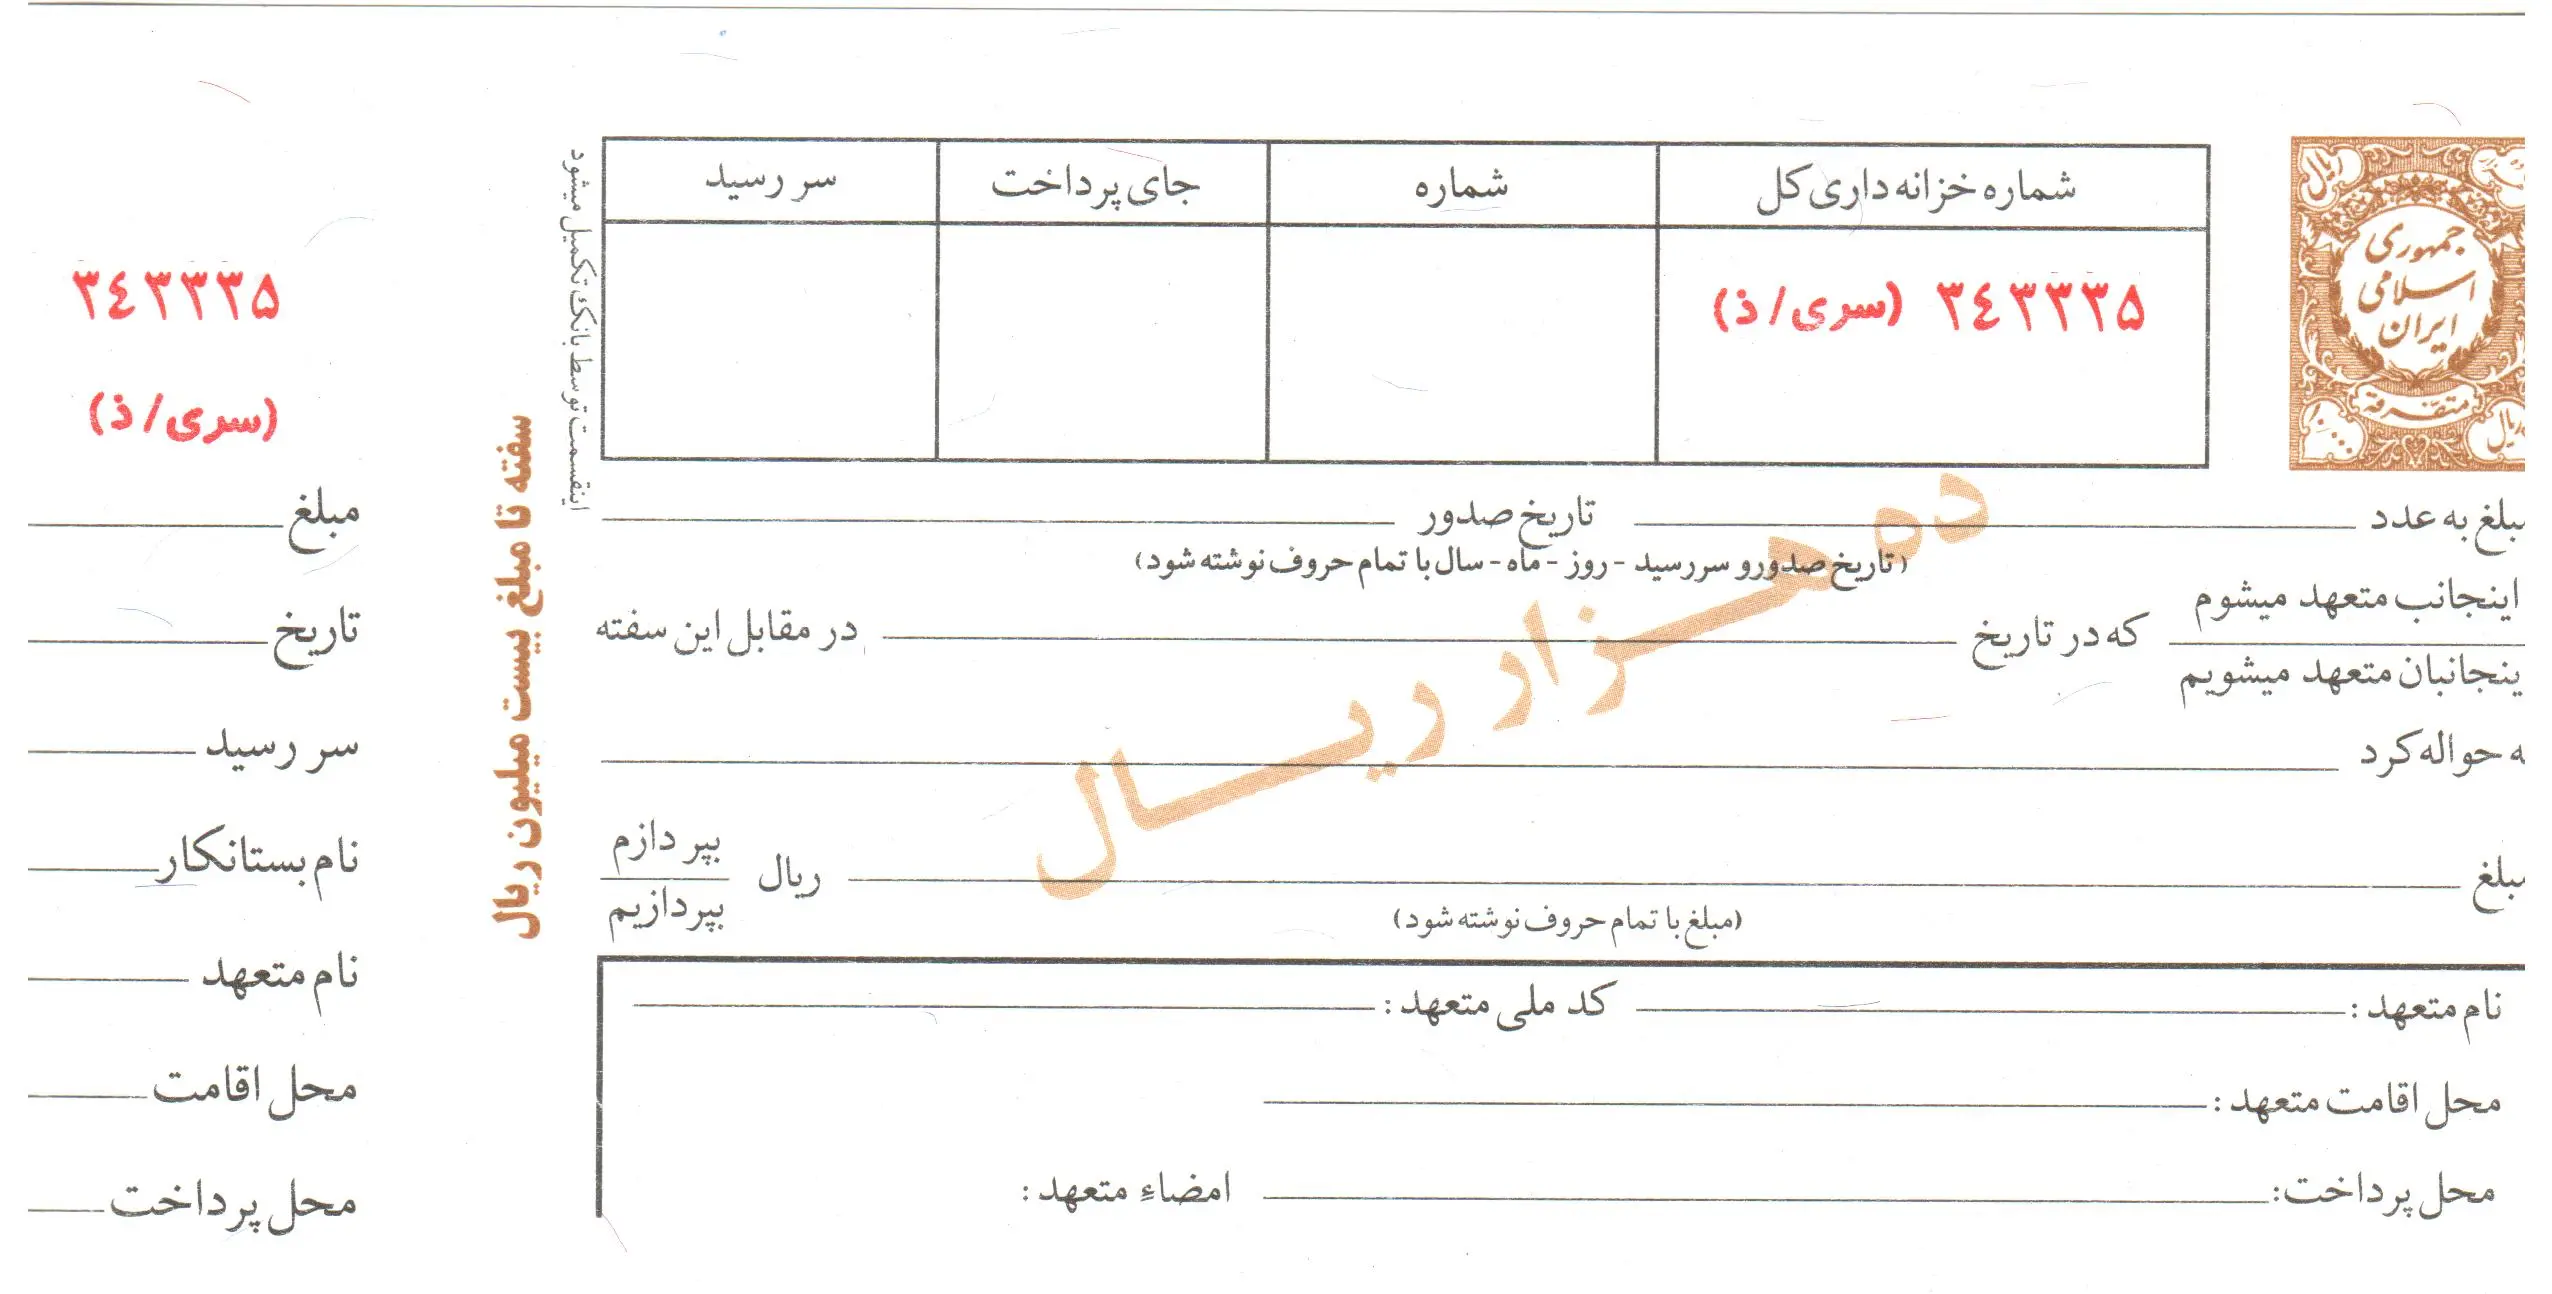 جمهوری
اسلامی
ایران
متفرقه
ریال
شماره خزانه داری کل
شماره
جای پرداخت
سر رسید
۳۴۳۳۳۵ (سری/ ذ)
اینقسمت توسط بانک تکمیل میشود
مبلغ به عدد تاریخ صدور
(تاریخ صدورو سررسید - روز - ماه - سال با تمام حروف نوشته شود)
اینجانب متعهد میشوم
اینجانبان متعهد میشویم
که در تاریخ در مقابل این سفته
به حواله کرد
مبلغ ریال
بپردازم
بپردازیم
(مبلغ با تمام حروف نوشته شود)
ده هزار ریال
نام متعهد : کد ملی متعهد :
محل اقامت متعهد :
محل پرداخت: امضاء متعهد :
سفته تا مبلغ بیست میلیون ریال
۳۴۳۳۳۵
(سری/ ذ)
مبلغ
تاریخ
سر رسید
نام بستانکار
نام متعهد
محل اقامت
محل پرداخت